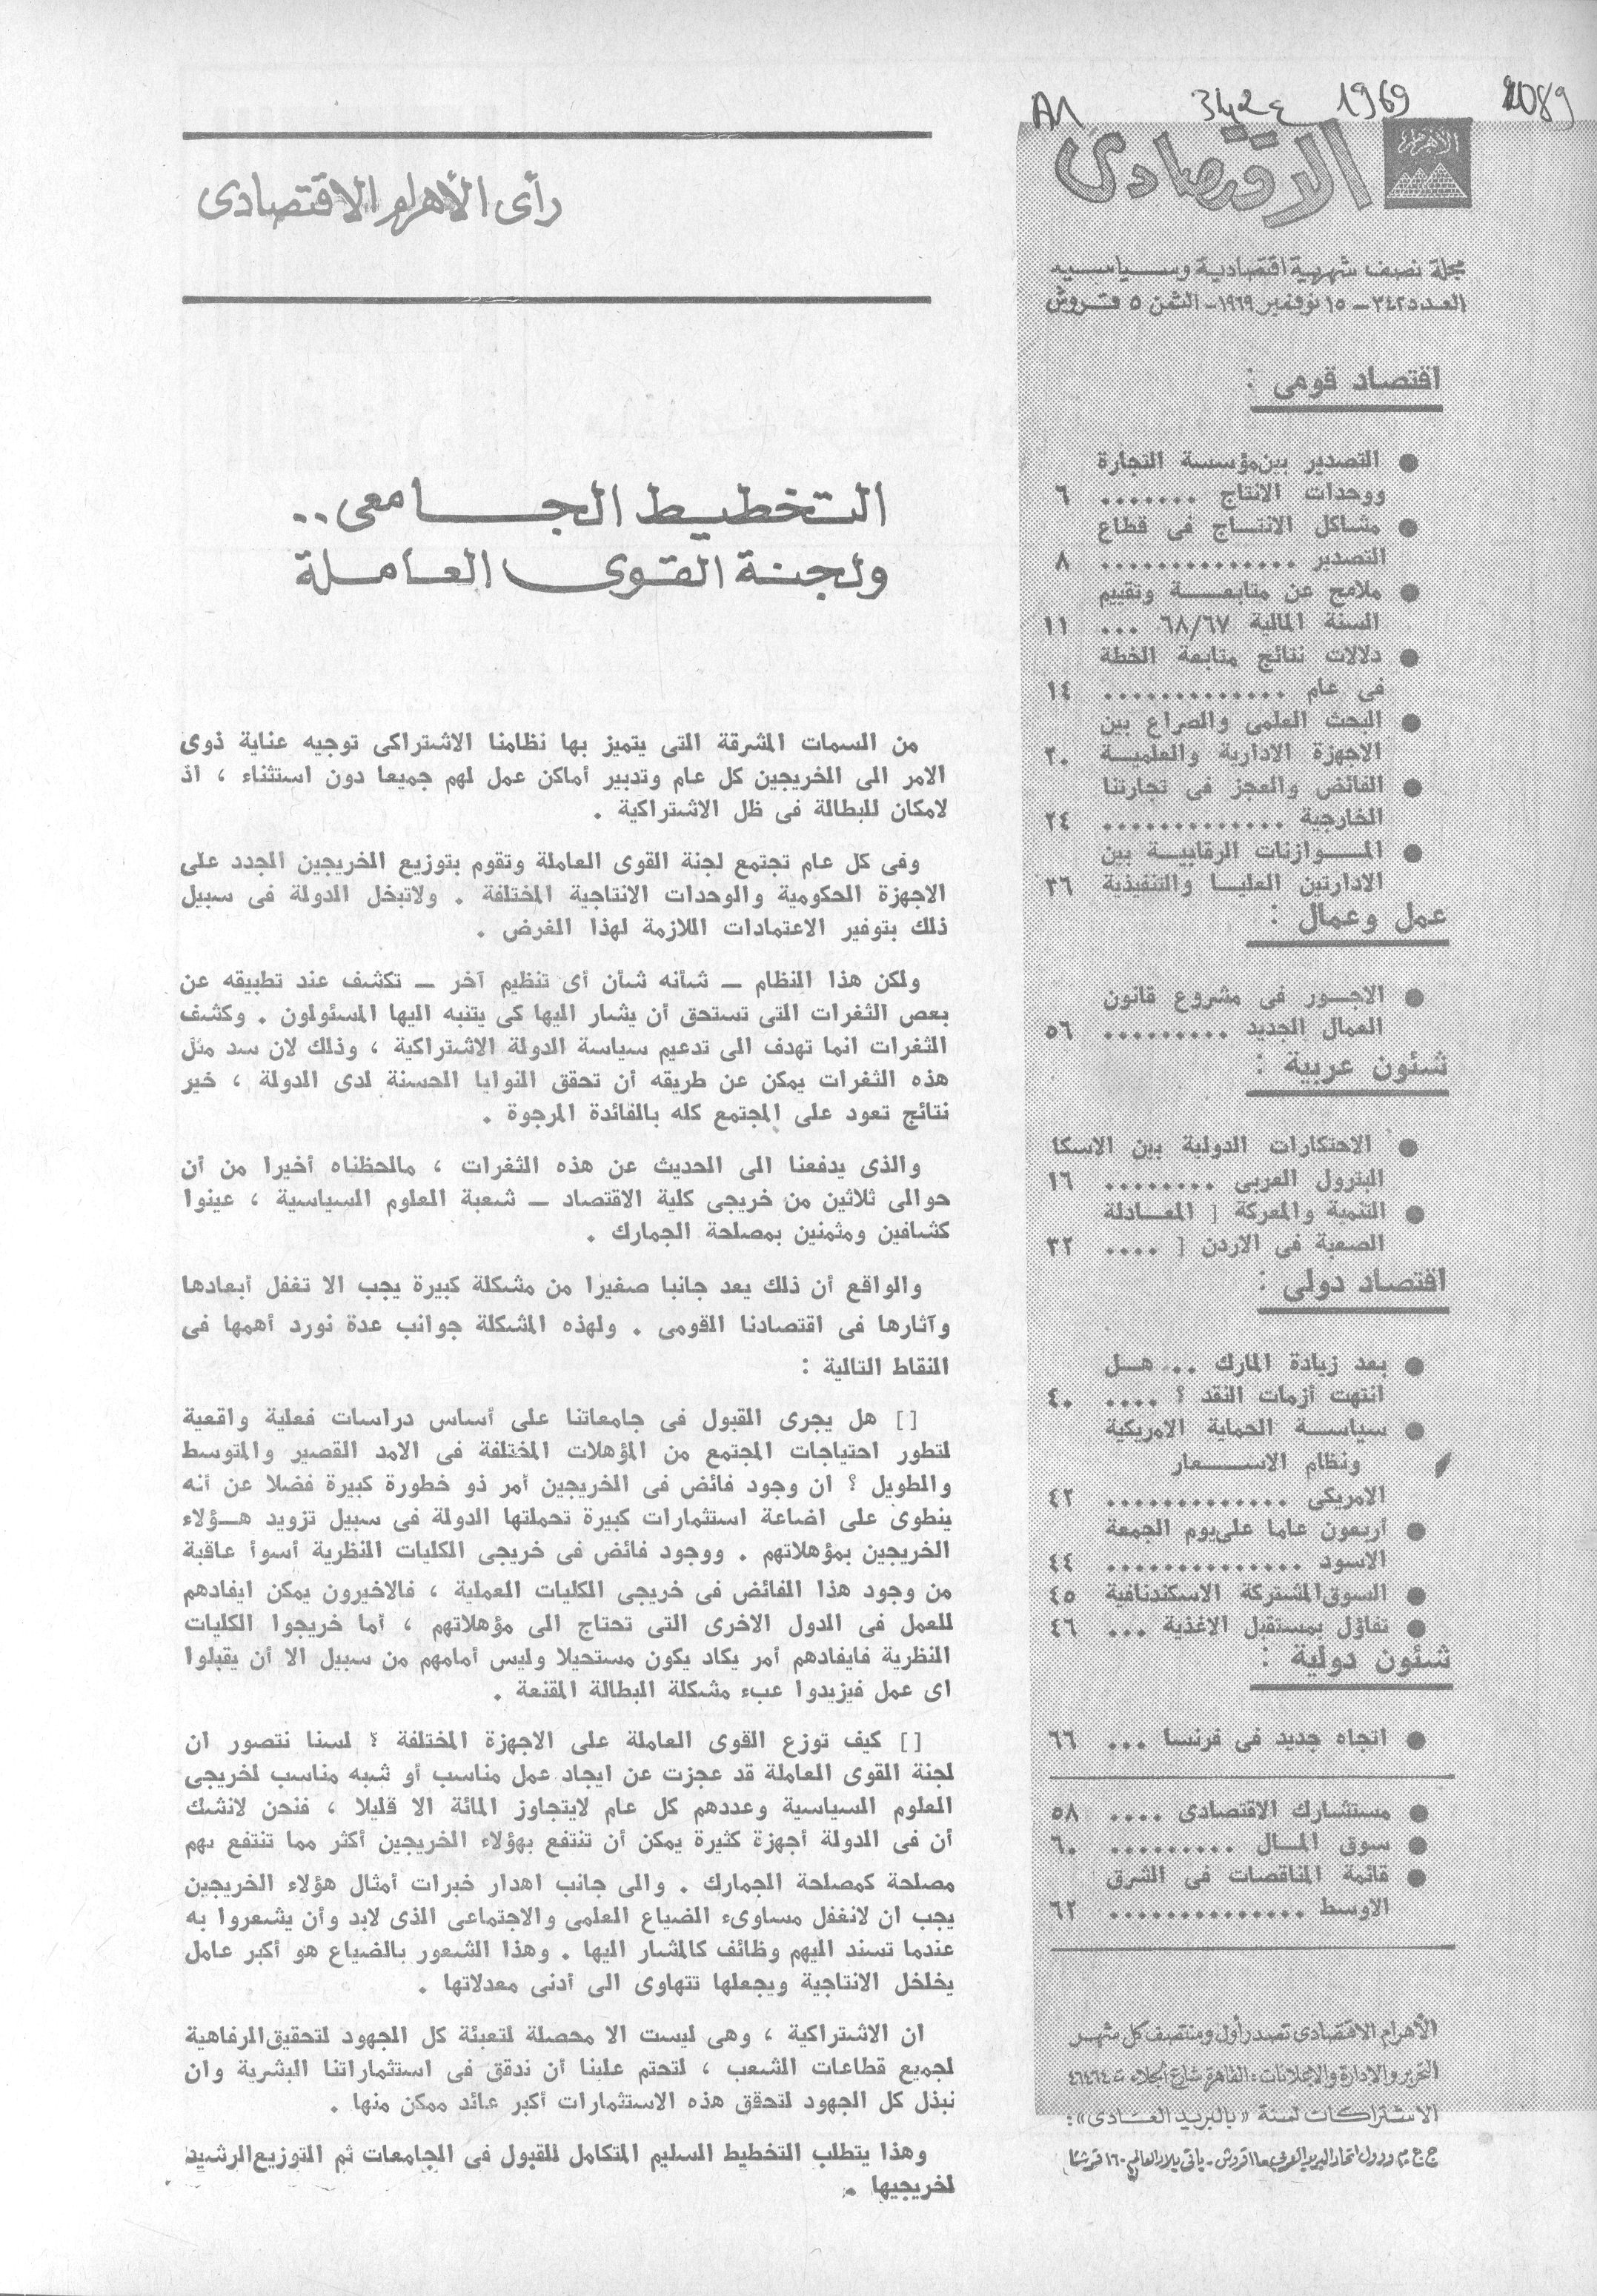 A1 342ع 1969 2089
الاهرام
الاقتصادى
مجلة نصف شهرية اقتصادية وسياسيه
العدد ٣٤٢ - ١٥ نوفمبر ١٩٦٩ - الثمن ٥ قروش
اقتصاد قومى :
● التصدير بين مؤسسة التجارة
ووحدات الانتاج ....... ٦
● مشاكل الانتـــاج فى قطاع
التصدير .............. ٨
● ملامح عن متابعـــــة وتقييم
السنة المالية ٦٨/٦٧ ... ١١
● دلالات نتائج متابعة الخطة
فى عام ............. ١٤
● البحث العلمى والصراع بين
الاجهزة الادارية والعلميـــة ٢٠
● الفائض والعجز فى تجارتنا
الخارجية ............. ٢٤
● المـــوازنات الرقابيـــة بين
الادارتين العليـــا والتنفيذية ٣٦
عمل وعمال :
● الاجـــور فى مشروع قانون
العمال الجديد ......... ٥٦
شئون عربية :
● الاحتكارات الدولية بين الاسكا
البترول العربى ........ ١٦
● التنمية والمعركة [ المعـــادلة
الصعبة فى الاردن ] .... ٣٢
اقتصاد دولى :
● بعد زيادة المارك .. هـــل
انتهت أزمات النقد ؟ .... ٤٠
● سياســـة الحماية الامريكية
ونظام الاســـــعار
الامريكى ............. ٤٢
● أربعون عاما على يوم الجمعة
الاسود .............. ٤٤
● السوق المشتركة الاسكندنافية ٤٥
● تفاؤل بمستقبل الاغذية ... ٤٦
شئون دولية :
● اتجاه جديد فى فرنسا ... ٦٦
● مستشارك الاقتصادى .... ٥٨
● سوق المـــال ......... ٦٠
● قائمة المناقصات فى الشرق
الاوسط .............. ٦٢
الأهرام الاقتصادى تصدر أول ومنتصف كل شهر
التحرير والإدارة والإعلانات : القاهرة شارع الجلاء ت ٤٦٤٦٤
الاشتراكات لسنة «بالبريد العادى» :
ج ع م ودول اتحاد البريد العربى
رأى الأهرام الاقتصادى
التخطيط الجـــامعى ..
ولجنة القوى العاملة
من السمات المشرقة التى يتميز بها نظامنا الاشتراكى توجيه عناية ذوى
الامر الى الخريجين كل عام وتدبير أماكن عمل لهم جميعا دون استثناء ، اذ
لامكان للبطالة فى ظل الاشتراكية .
وفى كل عام تجتمع لجنة القوى العاملة وتقوم بتوزيع الخريجين الجدد على
الاجهزة الحكومية والوحدات الانتاجية المختلفة . ولاتبخل الدولة فى سبيل
ذلك بتوفير الاعتمادات اللازمة لهذا الغرض .
ولكن هذا النظام ــ شأنه شأن أى تنظيم آخر ــ تكشف عند تطبيقه عن
بعض الثغرات التى تستحق أن يشار اليها كى يتنبه اليها المسئولون . وكشف
الثغرات انما تهدف الى تدعيم سياسة الدولة الاشتراكية ، وذلك لان سد مثل
هذه الثغرات يمكن عن طريقه أن تحقق النوايا الحسنة لدى الدولة ، خير
نتائج تعود على المجتمع كله بالفائدة المرجوة .
والذى يدفعنا الى الحديث عن هذه الثغرات ، مالحظناه أخيرا من أن
حوالى ثلاثين من خريجى كلية الاقتصاد ــ شعبة العلوم السياسية ، عينوا
كشافين ومثمنين بمصلحة الجمارك .
والواقع أن ذلك يعد جانبا صغيرا من مشكلة كبيرة يجب الا تغفل أبعادها
وآثارها فى اقتصادنا القومى . ولهذه المشكلة جوانب عدة نورد أهمها فى
النقاط التالية :
[] هل يجرى القبول فى جامعاتنا على أساس دراسات فعلية واقعية
لتطور احتياجات المجتمع من المؤهلات المختلفة فى الامد القصير والمتوسط
والطويل ؟ ان وجود فائض فى الخريجين أمر ذو خطورة كبيرة فضلا عن أنه
ينطوى على اضاعة استثمارات كبيرة تحملتها الدولة فى سبيل تزويد هـــؤلاء
الخريجين بمؤهلاتهم . ووجود فائض فى خريجى الكليات النظرية أسوأ عاقبة
من وجود هذا الفائض فى خريجى الكليات العملية ، فالاخيرون يمكن ايفادهم
للعمل فى الدول الاخرى التى تحتاج الى مؤهلاتهم ، أما خريجوا الكليات
النظرية فايفادهم أمر يكاد يكون مستحيلا وليس أمامهم من سبيل الا أن يقبلوا
اى عمل فيزيدوا عبء مشكلة البطالة المقنعة .
[] كيف توزع القوى العاملة على الاجهزة المختلفة ؟ لسنا نتصور ان
لجنة القوى العاملة قد عجزت عن ايجاد عمل مناسب أو شبه مناسب لخريجى
العلوم السياسية وعددهم كل عام لايتجاوز المائة الا قليلا ، فنحن لانشك
أن فى الدولة أجهزة كثيرة يمكن أن تنتفع بهؤلاء الخريجين أكثر مما تنتفع بهم
مصلحة كمصلحة الجمارك . والى جانب اهدار خبرات أمثال هؤلاء الخريجين
يجب ان لانغفل مساوىء الضياع العلمى والاجتماعى الذى لابد وأن يشعروا به
عندما تسند اليهم وظائف كالمشار اليها . وهذا الشعور بالضياع هو أكبر عامل
يخلخل الانتاجية ويجعلها تتهاوى الى أدنى معدلاتها .
ان الاشتراكية ، وهى ليست الا محصلة لتعبئة كل الجهود لتحقيق الرفاهية
لجميع قطاعات الشعب ، لتحتم علينا أن ندقق فى استثماراتنا البشرية وان
نبذل كل الجهود لتحقق هذه الاستثمارات أكبر عائد ممكن منها .
وهذا يتطلب التخطيط السليم المتكامل للقبول فى الجامعات ثم التوزيع الرشيد
لخريجيها .